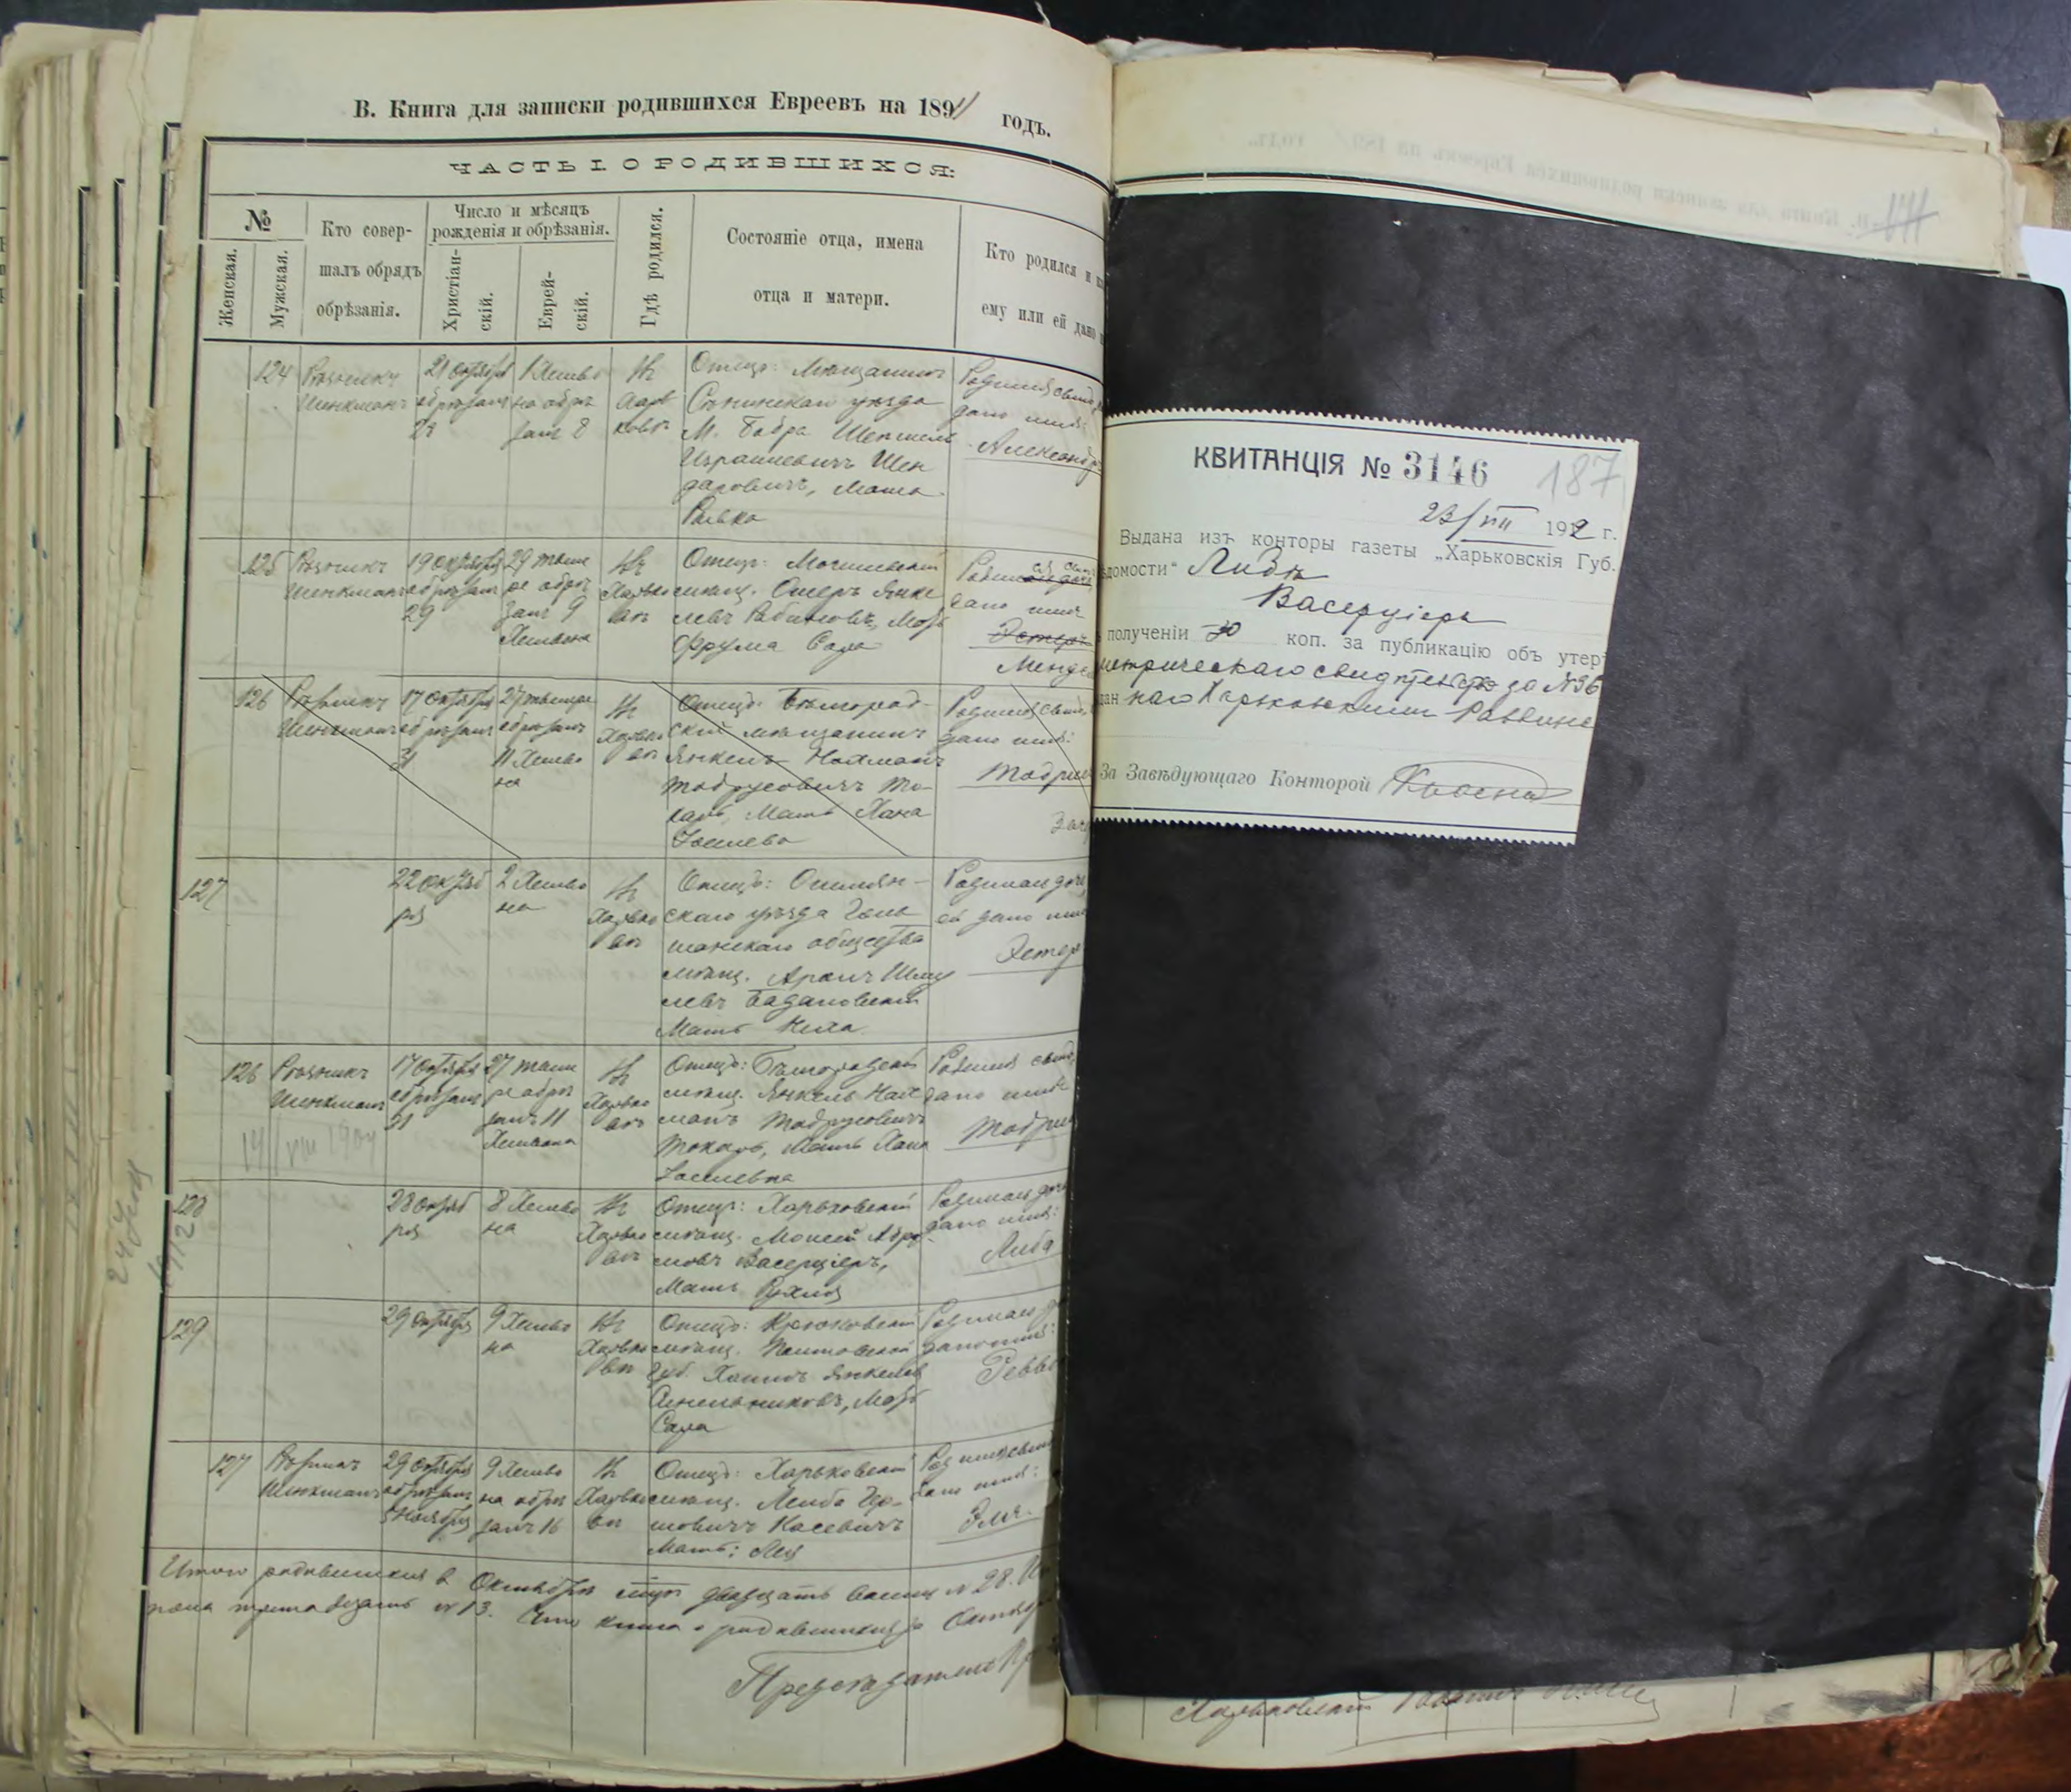 В. Книга для записки родившихся Евреевъ на 1891 годъ.
ЧАСТЬ I. О РОДИВШИХСЯ:
№
Женская.
Мужская.
Кто совер-
шалъ обрядъ
обрѣзанія.
Число и мѣсяцъ
рожденія и обрѣзанія.
Христіан-
скій.
Еврей-
скій.
Гдѣ родился.
Состояніе отца, имена
отца и матери.
Кто родился и
ему или ей дано
124
Рѣзникъ
Шенкманъ
21 октября
обрѣзанъ
28
1 Хешво
на обрѣ
занъ 8
Въ
Харь
ковѣ
Отецъ: Мѣщанинъ
Сѣнинскаго уѣзда
М. Бобра
Израилевичъ Шен
деровичъ, Мать
Ривка
Родился сынъ,
дано имя:
Александръ
125
Рѣзникъ
Шенкманъ
19 октября
обрѣзанъ
29
29 Тише
ре обрѣ
занъ 9
Хешвана
Въ
Харько
вѣ
Отецъ: Могилевскій
мѣщ. Ошеръ Янке
левъ Рабиновъ, Мать
Фрума Сара
дано имя
Эстеръ
Менде
126
Рѣзникъ
Шенкманъ
17 октября
обрѣзанъ
31
27 Тишре
обрѣзанъ
11 Хешво
на
Въ
Харько
вѣ
Отецъ: Бѣлгород-
скій мѣщанинъ
Янкель Нахманъ
Тодрусовичъ То-
карь, Мать Хана
Іоселева
Родился сынъ,
дано имя:
Тодрис
127
22 октяб
ря
2 Хешво
на
Въ
Харько
вѣ
Отецъ: Ошмян-
скаго уѣзда Голь
шанскаго общества
мѣщ. Аронъ Шму
левъ Багановскій
Мать Неха.
Родилась дочь,
ей дано имя
Эстер
126
Рѣзникъ
Шенкманъ
17 октября
обрѣзанъ
31
27 Тише
ре обрѣ
занъ 11
Хешвана
Въ
Харько
вѣ
Отецъ: Бѣлгородскій
мѣщ. Янкель Нах
манъ Тодрусовичъ
Токарь, Мать Хана
Іоселевна
Родился сынъ,
дано имя
Тодрис
14/VIII 1904
128
28 октяб
ря
8 Хешво
на
Въ
Харько
вѣ
Отецъ: Харьковскій
мѣщ. Мовшай Абра-
мовъ Васерціеръ,
Мать Рухля
Родилась дочь
дано имя:
Либа
1912
129
29 октября
9 Хешво
на
Въ
Харько
вѣ
Отецъ: Крюковскій
мѣщ. Полтавской
губ. Хаимъ Янкелевъ
Синельниковъ, Мать
Сара
Родилась
дано имя:
Ревве
127
Рѣзникъ
Шенкманъ
29 октября
обрѣзанъ
5 Ноября
9 Хешво
на обрѣ
занъ 16
Въ
Харько
вѣ
Отецъ: Харьковскій
мѣщ. Лейба Гер-
шовичъ Касевичъ
Мать: Лея
Родился сынъ
дано имя:
Эля.
Итого родившихся въ Октябрѣ м-цѣ двадцать восемь № 28.
пола тринадцать № 13. Что книга о родившихся за Октябрь
КВИТАНЦІЯ № 3146
187
23/VII 1912 г.
Выдана изъ конторы газеты „Харьковскія Губ.
домости“ Либѣ
Васерціеръ
полученіи 30 коп. за публикацію объ утер
метрическаго свидѣтельства за № 36
дан наго Харьковскимъ Раввино
За Завѣдующаго Конторой
Харьковскій Раввинъ